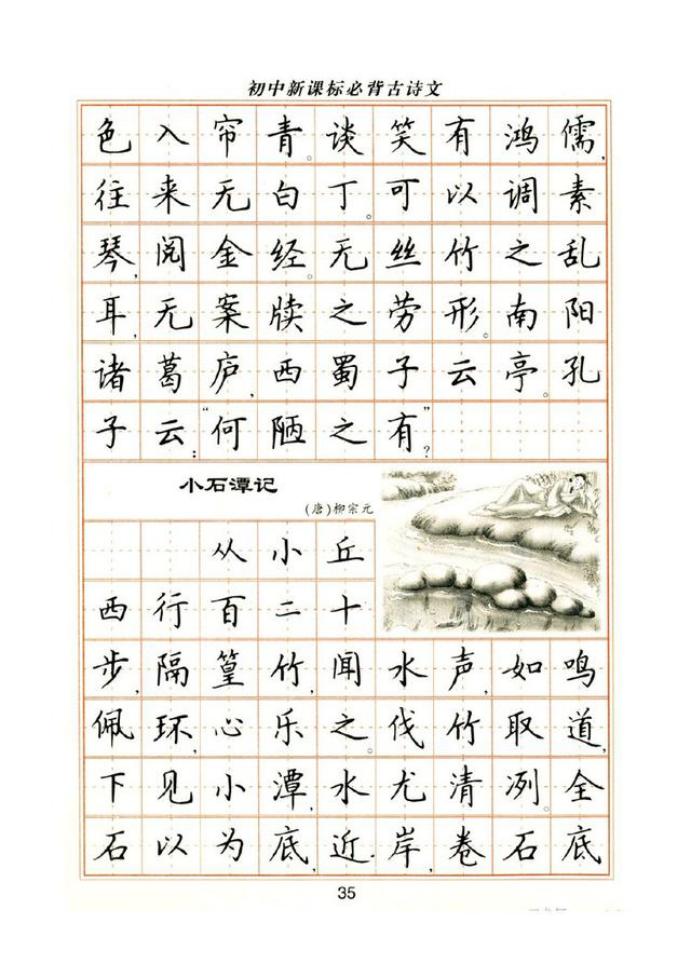 初中新课标必背古诗文
色入帘青。谈笑有鸿儒,
往来无白丁。可以调素
琴,阅金经。无丝竹之乱
耳,无案牍之劳形。南阳
诸葛庐,西蜀子云亭。孔
子云:“何陋之有”?
小石潭记
(唐)柳宗元
从小丘
西行百二十
步,隔篁竹,闻水声,如鸣
佩环,心乐之。伐竹取道,
下见小潭,水尤清冽。全
石以为底,近岸,卷石底
35